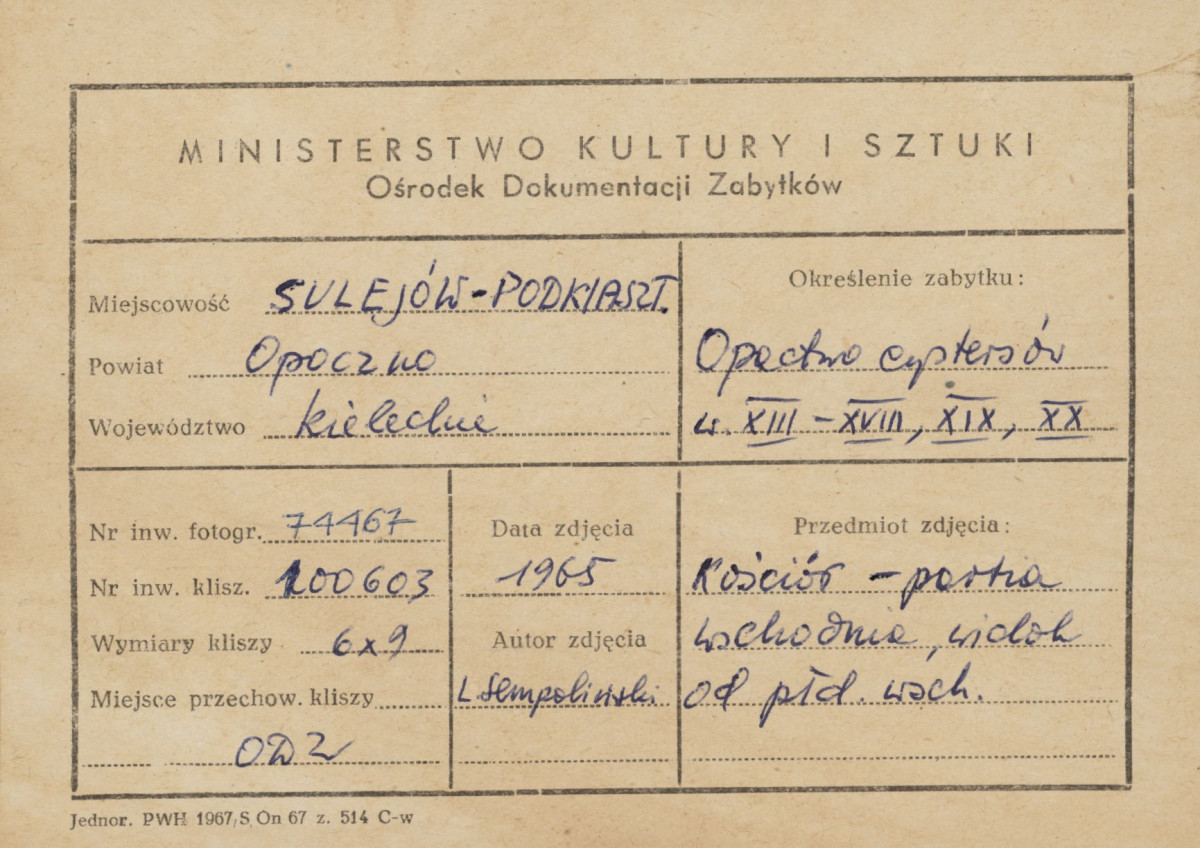 MINISTERSTWO KULTURY I SZTUKI
Ośrodek Dokumentacji Zabytków
Miejscowość SULEJÓW-PODKLASZT.
Powiat Opoczno
Województwo kieleckie
Określenie zabytku:
Opactwo cystersów
w. XIII – XVIII, XIX, XX
Nr inw. fotogr. 74467
Nr inw. klisz. 100603
Wymiary kliszy 6x9
Miejsce przechow. kliszy
ODZ
Data zdjęcia
1965
Autor zdjęcia
L Sempoliński
Przedmiot zdjęcia:
Kościół – partia
wschodnia, widok
od płd. wsch.
Jednor. PWH 1967, S On 67 z. 514 C-w